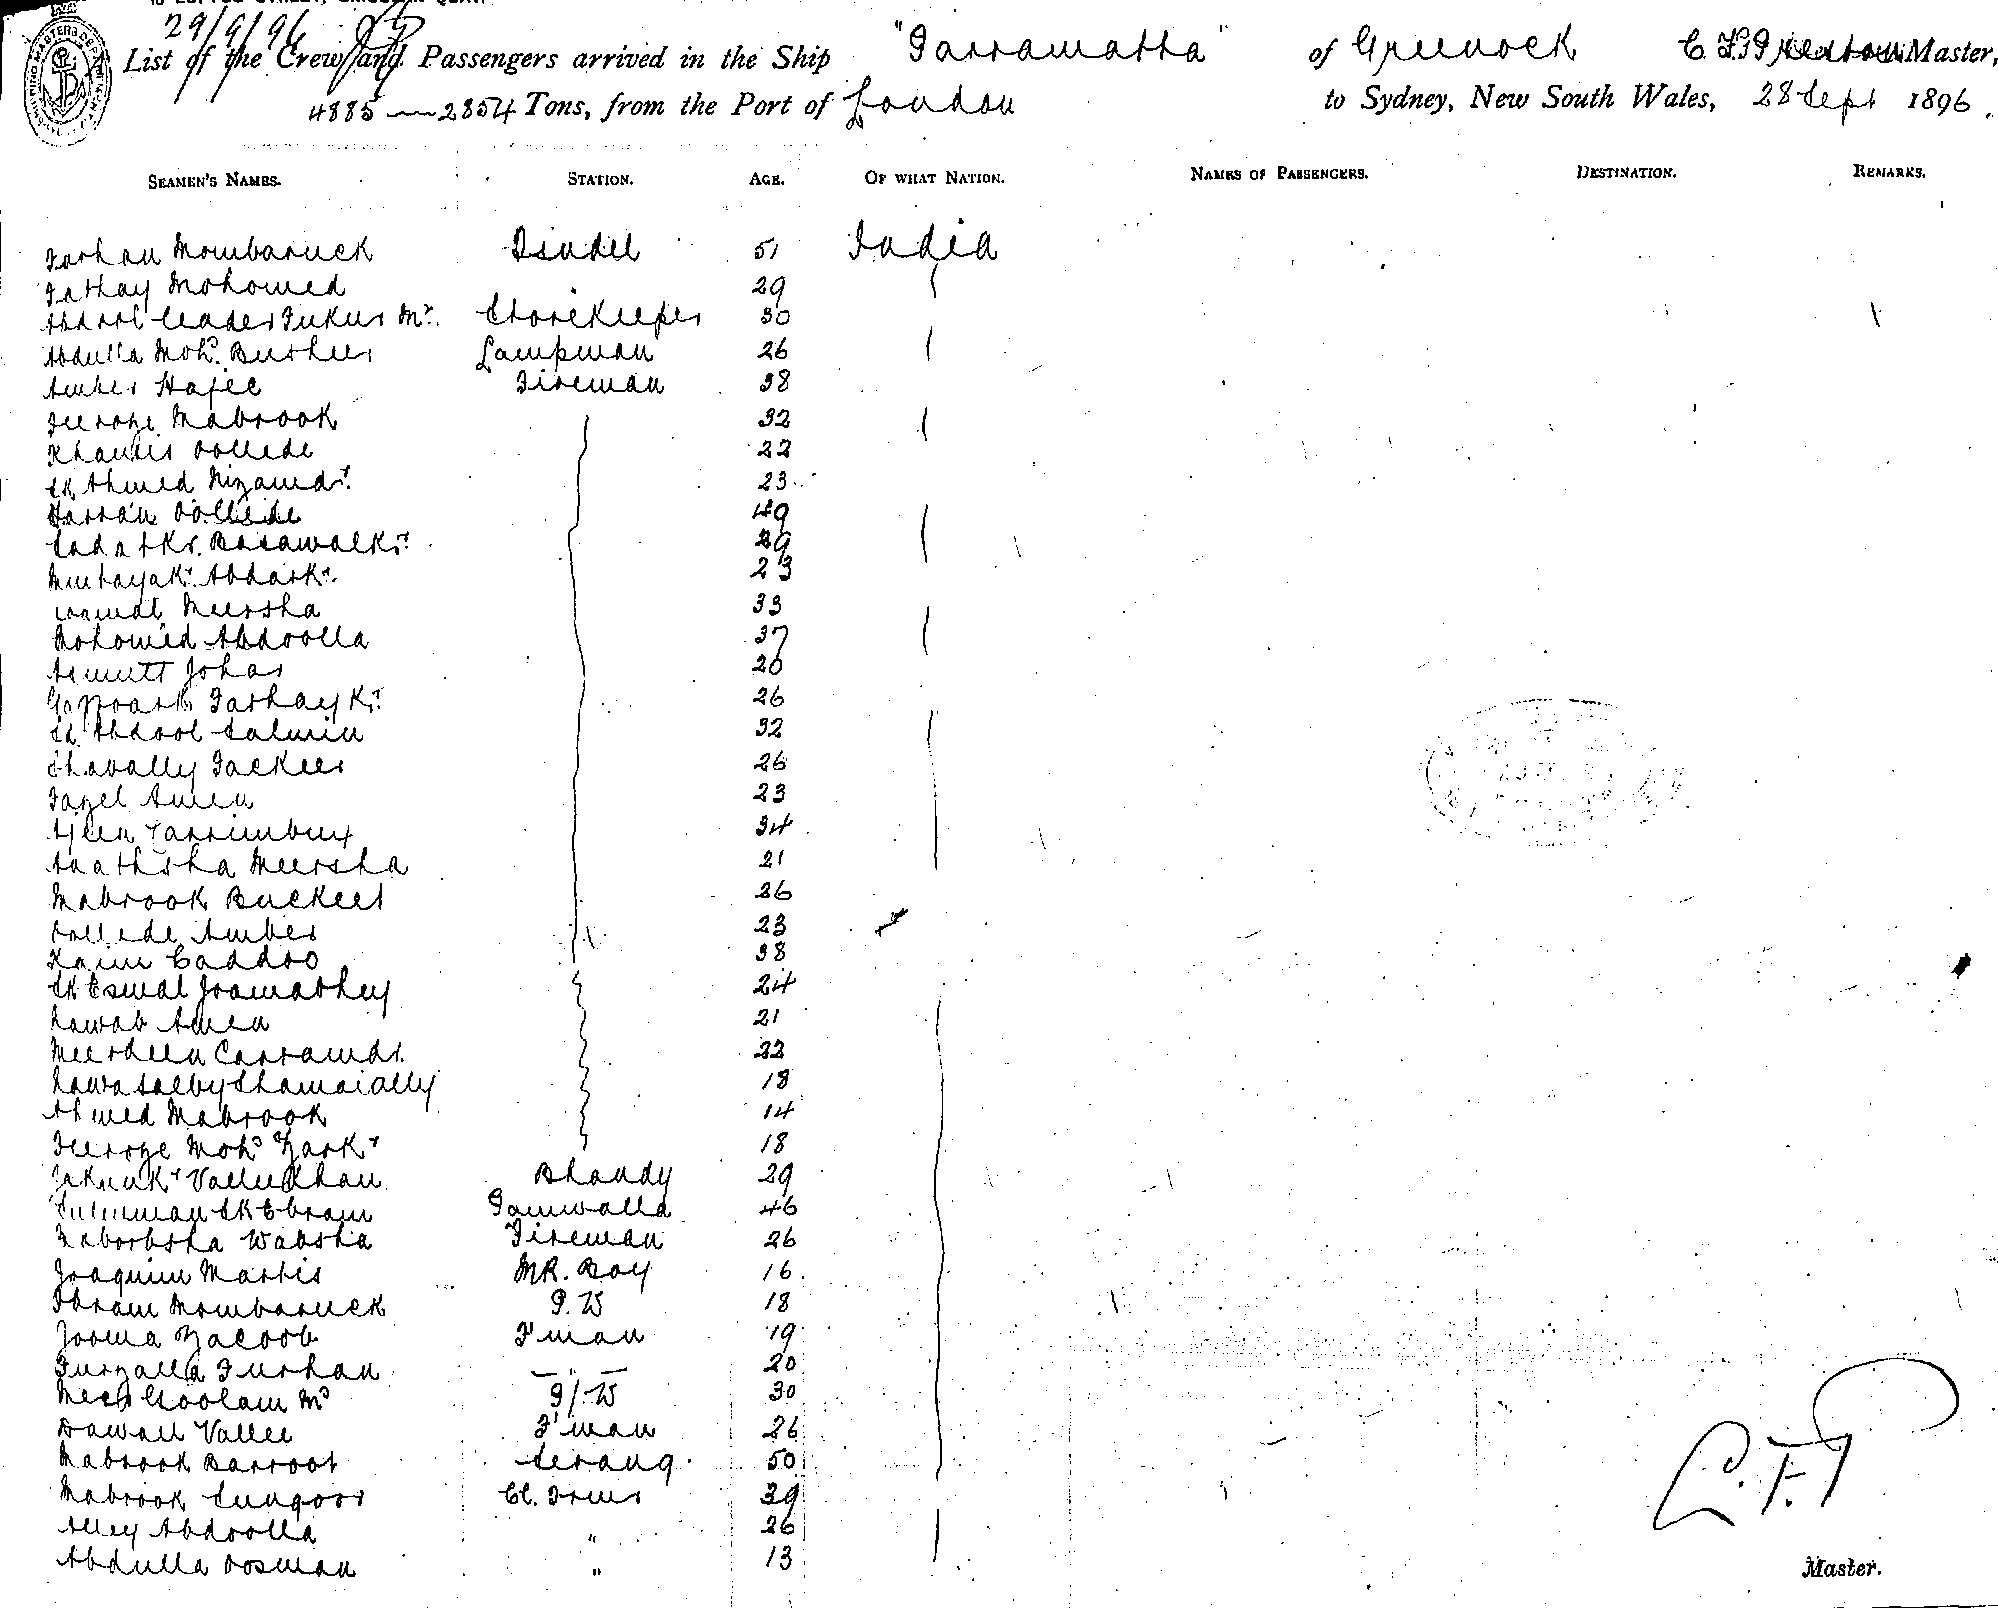 29/9/96
List of the Crew and Passengers arrived in the Ship "Parramatta" of Greenock Master,
4885 — 2854 Tons, from the Port of London to Sydney, New South Wales, 28 Sept 1896.
SEAMEN'S NAMES. STATION. AGE. OF WHAT NATION. NAMES OF PASSENGERS. DESTINATION. REMARKS.
Farhan Mombaruck Tindel 51 India
Fathay Mohomed 29
Abdool Cader Fukur Md. Storekeeper 30
Abdulla Mohd. Busheer Lampman 26
Amber Hajee Fireman 38
Feeroze Mabrook 32
Khamis Oollede 22
Sk Ahmed Nizamdn. 23
Farran Oollede 49
29
23
Meersha 33
Mohomed Abdoolla 37
Johar 20
26
Sd. Abdool Salmin 32
Shavally Fackeer 26
Fazel Ameen 23
Carrimbux 34
Meersha 21
Mabrook Buckeet 26
Oollede Amber 23
Caddoo 38
Sk Esmal 24
Nawab Ameen 21
Meerdeen Carramdn. 22
18
Ahmed Mabrook 14
Feeroze Mohd 18
Valleekhan Bhandy 29
Suleeman Sk Ebram Pamwalla 46
Fireman 26
Joaquim Martis MR. Boy 16
Ibram Mombaruck P.W 18
Jooma Yacoob F'man 19
Furzalla Furhan —"— 20
Meer Goolam Md P/.W 30
Dawall Vallee F'man 26
Mabrook Barroot Serang. 50
Mabrook Sungoor Cl. Trmr 39
Alley Abdoolla " 26
Abdulla Oosman " 13
Master.